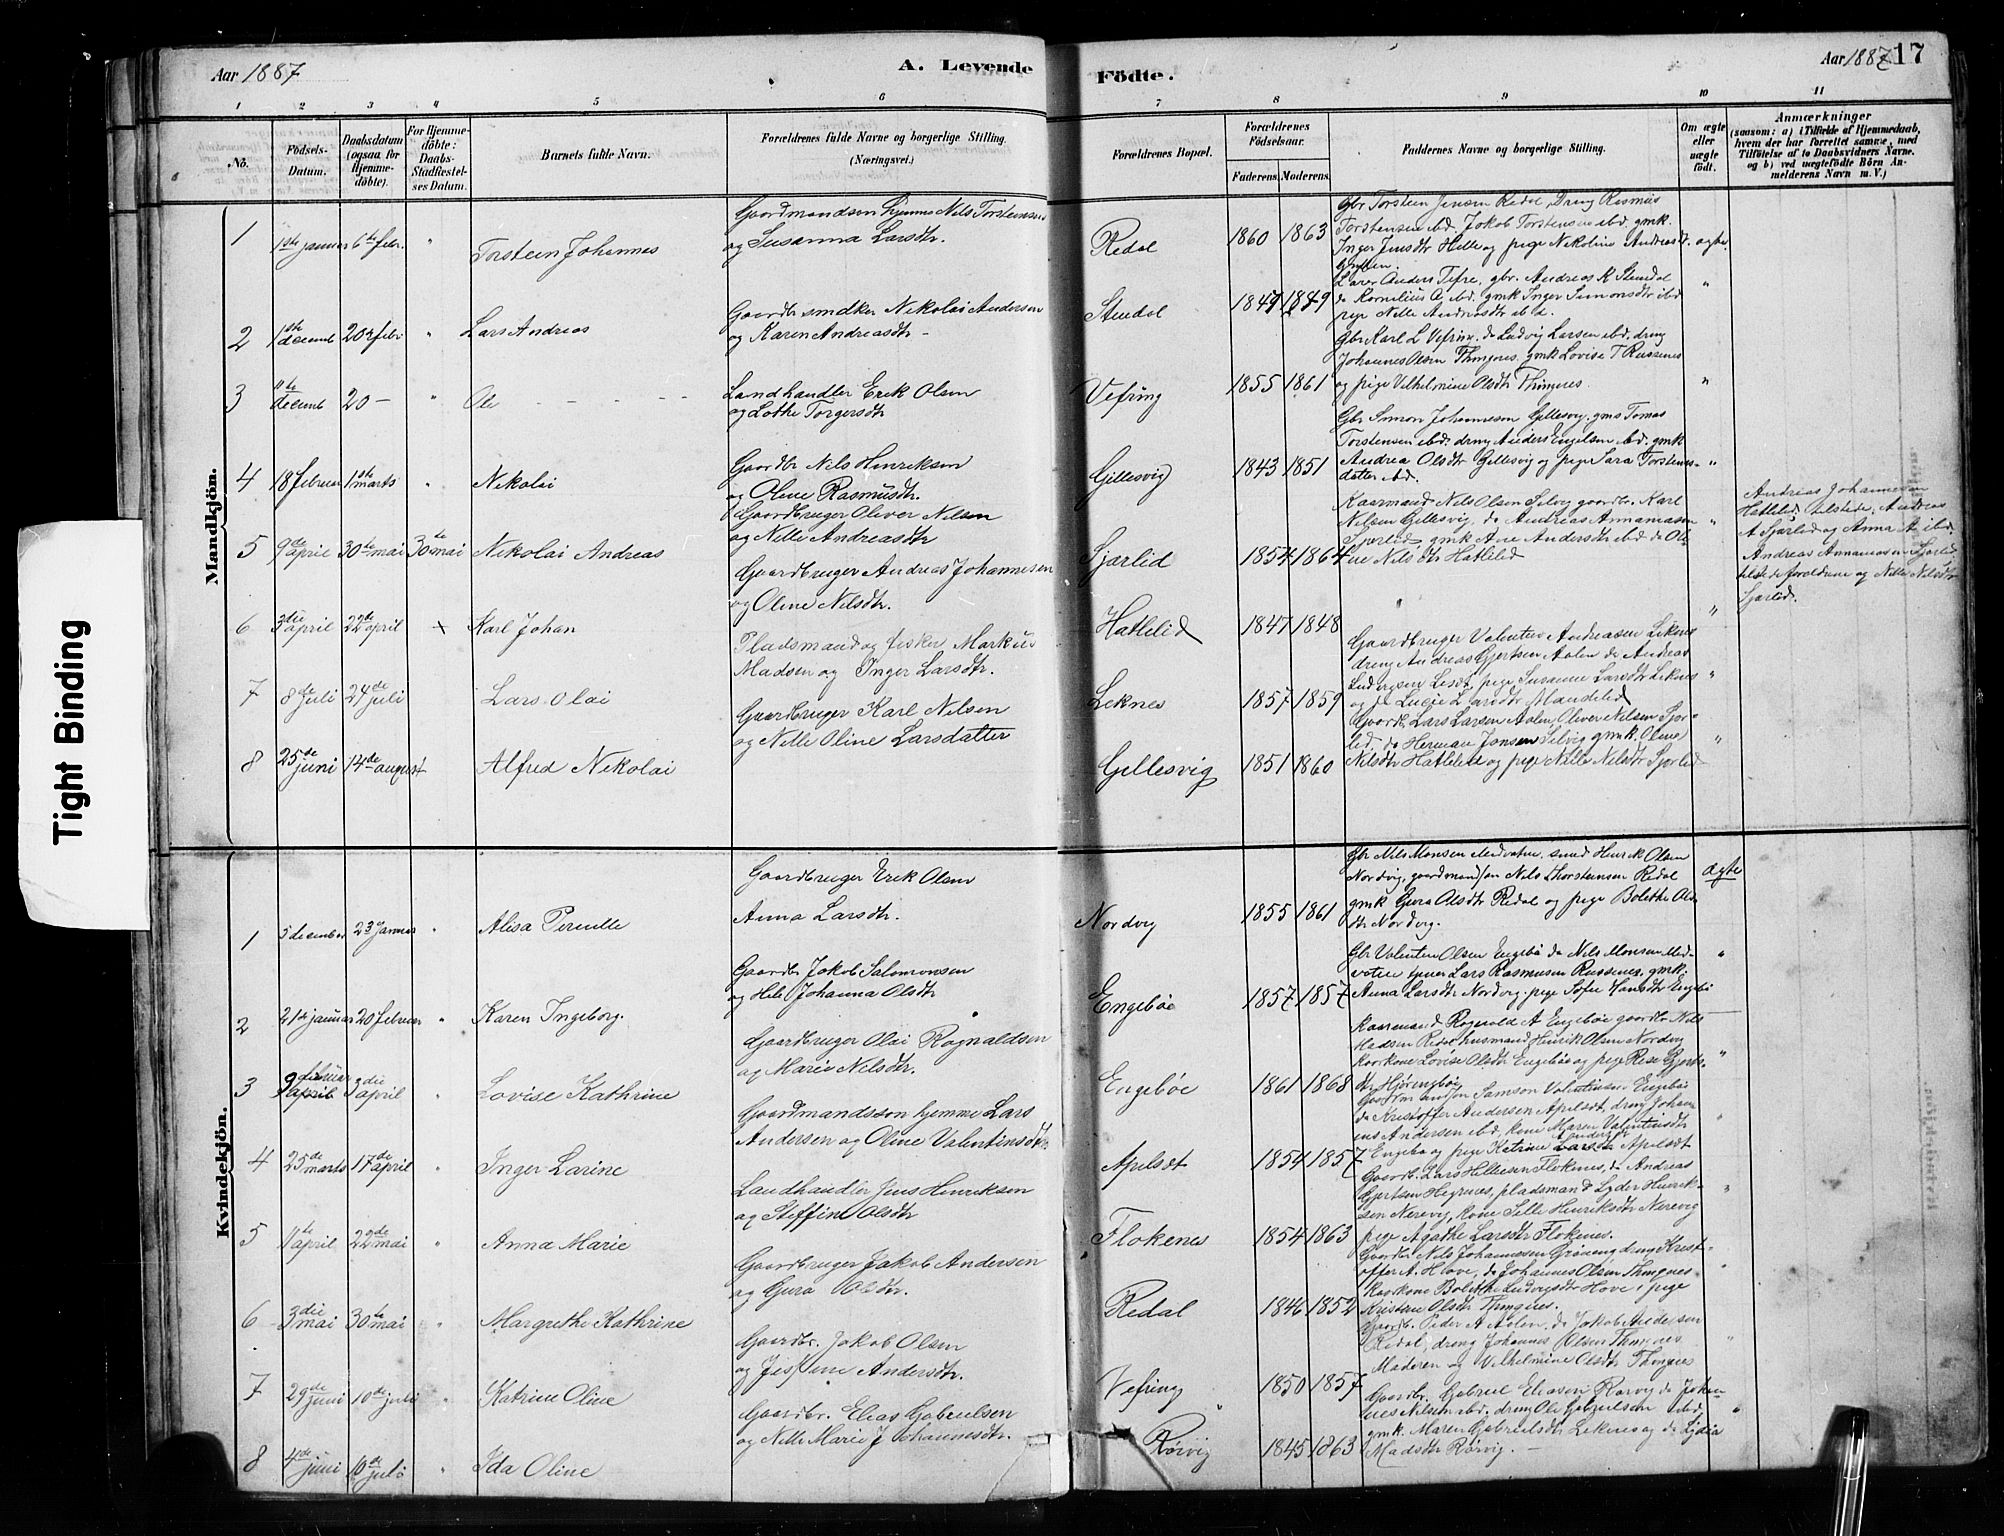 Aar 1887
A. Levende
Födte.
Aar 1887
17
1 2 3 4 5 6 7 8 9 10 11
No.
Födsels-
Datum.
Daabsdatum
(ogsaa for
Hjemme-
döbte).
For Hjemme-
döbte:
Daabs-
Stadfæstel-
ses Datum.
Barnets fulde Navn.
Forældrenes fulde Navne og borgerlige Stilling.
(Næringsvei.)
Forældrenes Bopæl.
Forældrenes
Födselsaar.
Faderens. Moderens.
Faddernes Navne og borgerlige Stilling.
Om ægte
eller
uægte
födt.
Anmærkninger
(saasom: a) i Tilfælde af Hjemmedaab,
hvem der har forrettet samme, med
Tilföielse af to Daabsvidners Navne.
og b) ved uægtefödte Börn An-
melderens Navn m. V.)
Tight Binding
Mandkjön.
1 1ste januar 6te febr. " Torstein Johannes
Gaardmandsøn hjemme Nils Torstensen
og Susanna Larsdtr.
Redal 1860 1863
Gbr Torstein Jensen Redal, Dreng Rasmus
Torstensen ibd. Jakob Torstensen ibd. gmk.
Inger Jensdtr Helle og pige Nikoline Andreasdt.
ægte.
2 1ste decemb 20de febr " Lars Andreas
Gaardbr smdker Nikolai Andersen
og Karen Andreasdtr
Stendal 1847 1849
Anders Tefre, gbr. Andreas R Stendal
do Kornelius A. ibd. gmk Inger Simonsdtr ibd
pige Nille Andreasdtr ibd.
"
3 decemb 20 – " Ole
Landhandler Erik Olsen
og Lothe Torgersdtr
Vefring 1855 1861
Gbr Karl L Vefring. do Ludvig Larsen ibd, dreng
Johannes Olsen Thingnes. gmk Lovise T Russenes
og pige Vilhelmine Olsdtr Thingnes.
"
4 18 februar 1ste marts " Nikolai
Gaardbr Nils Henriksen
og Oline Rasmusdtr.
Gillesvig 1843 1851
Gbr Simon Johannesen Gillesvig. gms Tomas
Torstensen ibd. dreng Anders Engelsen ibd. gmk
Andrea Olsdtr Gillesvig og pige Sara Torstens-
datter ibd.
"
5 9de april 30te mai 30te mai Nikolai Andreas
Gaardbruger Oliver Nilsen
og Nille Andreasdtr
Sjørlid 1854 1864
Kaarmand Nils Olsen Selvig gaardbr. Karl
Nilsen Gillesvig, do Andreas Annanias̈en
Sjørlid gmk Ane Andersdtr ibd do Oli-
ne Nilsdtr Hatlelid
"
Andreas Johannesen
Hatlelid, tilstede, Andreas
A Sjørlid og Anna A ibd.
Andreas Annaniasen Sjørlid
tilstede forældrene og Nille Nilsdtr
Sjørlid.
6 3die april 22de april × Karl Johan
Gaardbruger Andreas Johannesen
og Oline Nilsdtr.
Hatlelid 1847 1848
"
7 8de juli 24de juli Lars Olai
Pladsmand og fisker Markus
Madsen og Inger Larsdtr.
Leknes 1857 1859
Gaardbruger Valentin Andreasen Leknes
dreng Andreas Gjertsen Aalen do Andreas
Ludvigsen pige Susanne Larsdtr Leknes
og do Lucie Larsdtr Mandelid
"
8 25de juni 14de august Alfred Nikolai
Gaardbruger Karl Nilsen
og Nille Oline Larsdatter
Gillesvig 1851 1860
Gaardb. Lars Larsen Aalen, Oliver Nilsen Sjør-
lid, do Herman Jonsen Selvig gmk. Oline
Nilsdtr Hatlelid og pige Nille Nilsdtr Sjørlid
"
Kvindekjön.
1 5 december 23 januar " Alisa Pernille
Gaardbruger Erik Olsen
Anna Larsdtr.
Nordvig 1855 1861
Gbr Nils Monsen Medvatne, smed Henrik Olsen
Nordvig, gaardmandsøn Nils Thorstensen Redal
gmk Gura Olsdtr Redal og pige Bolethe Ols-
dtr Nordvig.
ægte
2 21de januar 20 februar " Karen Ingeborg.
Gaardbr Jakob Salomonsen
og Hele Johanna Olsdtr
Engebøe 1857 1857
Gbr Valentin Olsen Engebø do Nils Monsen Med-
vatne Lars Rasmusen Russenes, gmk.
Anna Larsdtr Nordvig, pige Sofie Hansdtr Engebø
"
3 9 februar april 3die april " Lovise Kathrine
Gaardbruger Olai Ragnaldsen
og Marie Nilsdtr.
Engebøe 1861 1868
Kaarmand Ragnvald A Engebøe gaardbr Nils
Madsen Redal husmand Henrik Olsen Nordvig
Kaarkone Lovise Olsdtr Engebøe og pige
"
4 25de marts 17de april " Inger Larine
Gaardmandsson hjemme Lars
Andersen og Oline Valentinsdtr.
Apelsæt 1854 1857
Samson Valentinsen Engebø
do Kristoffer Andersen Apelsæt, dreng Johan-
nes Andersen ibd. kone Maren Valentinsdtr
Engebø og pige Katrine Andersdtr Apelsæt
"
5 april 22de mai " Anna Marie
Landhandler Jens Henriksen
og Steffine Olsdtr
Flokenes 1854 1863
Gaardb. Lars Hellesen Flokenes, do Andreas
Gjertsen Hegrenes, pladsmand Lyder Henrik-
sen Nerevig, kone Sille Henriksdtr Nerevig
pige Agathe Larsdtr Flokenes.
"
6 3die mai 30te mai " Margrethe Kathrine
Gaardbruger Jakob Andersen
og Gura Olsdtr.
Redal 1846 1852
Gaardbr Nils Johannesen Grøneng dreng Krist-
offer A. Hove, do Johannes Olsen Thingnes
kaarkone Bolethe Ludvigsdtr Hove, pige
Kristen Olsdtr Thingnes.
"
7 29de juni 10de juli " Katrine Oline
Gaardbr. Jakob Olsen
og Jesine Andersdtr.
Vefring 1850 1857
Gaardb. Peder A Aalen, do Jakob Andersen
Redal, dreng Johannes Olsen Thingnes
Moderen og Vilhelmine Olsdtr Thingnes
"
8 4de juni 10de juli " Ida Oline
Gaardbr. Elias Gabrielsen
og Nille Marie Johannesdtr.
Rørvig 1845 1863
Gaardbr. Gabriel Eliasen Rørvig do Johan-
nes Nilsen ibd. dreng Ole Gabrielsen ibd.
gmk. Maren Gabrielsdtr Leknes og do Lydia
Madsdtr Rørvig.
"